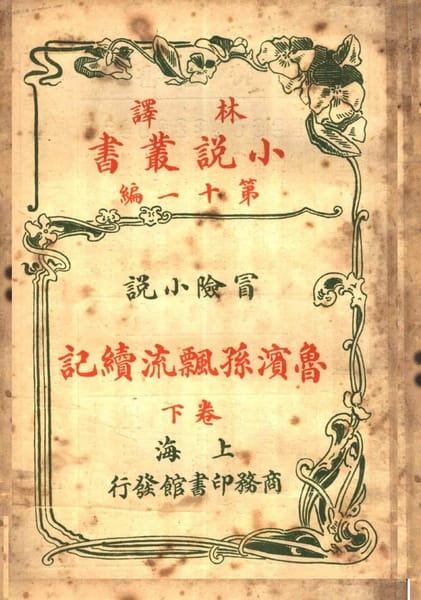 林譯
小說叢書
第十一編
冒險小說
魯濱孫飄流續記
卷下
上海
商務印書館發行